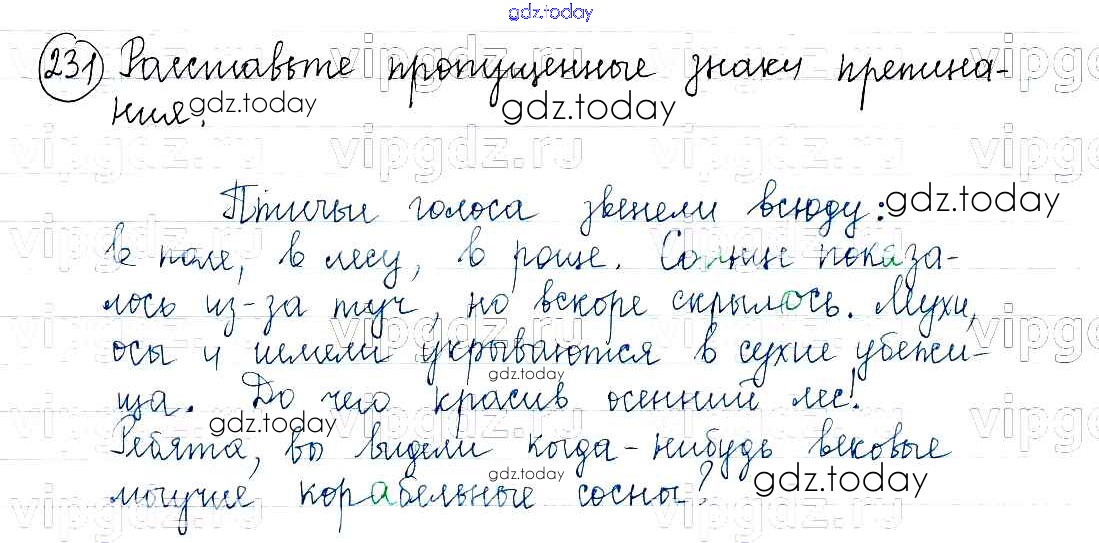 gdz.today
231 Расставьте пропущенные знаки препина-
ния.
gdz.today gdz.today
vipgdz.ru vipgdz.ru vipgdz.ru
Птичьи голоса звенели всюду:
gdz.today
в поле, в лесу, в роще. Солнце показа-
лось из-за туч, но вскоре скрылось. Мухи,
осы и шмели укрываются в сухие убежи-
gdz.today
ща. До чего красив осенний лес!
gdz.today gdz.today
Ребята, вы видели когда-нибудь вековые
gdz.today gdz.today
могучие корабельные сосны?